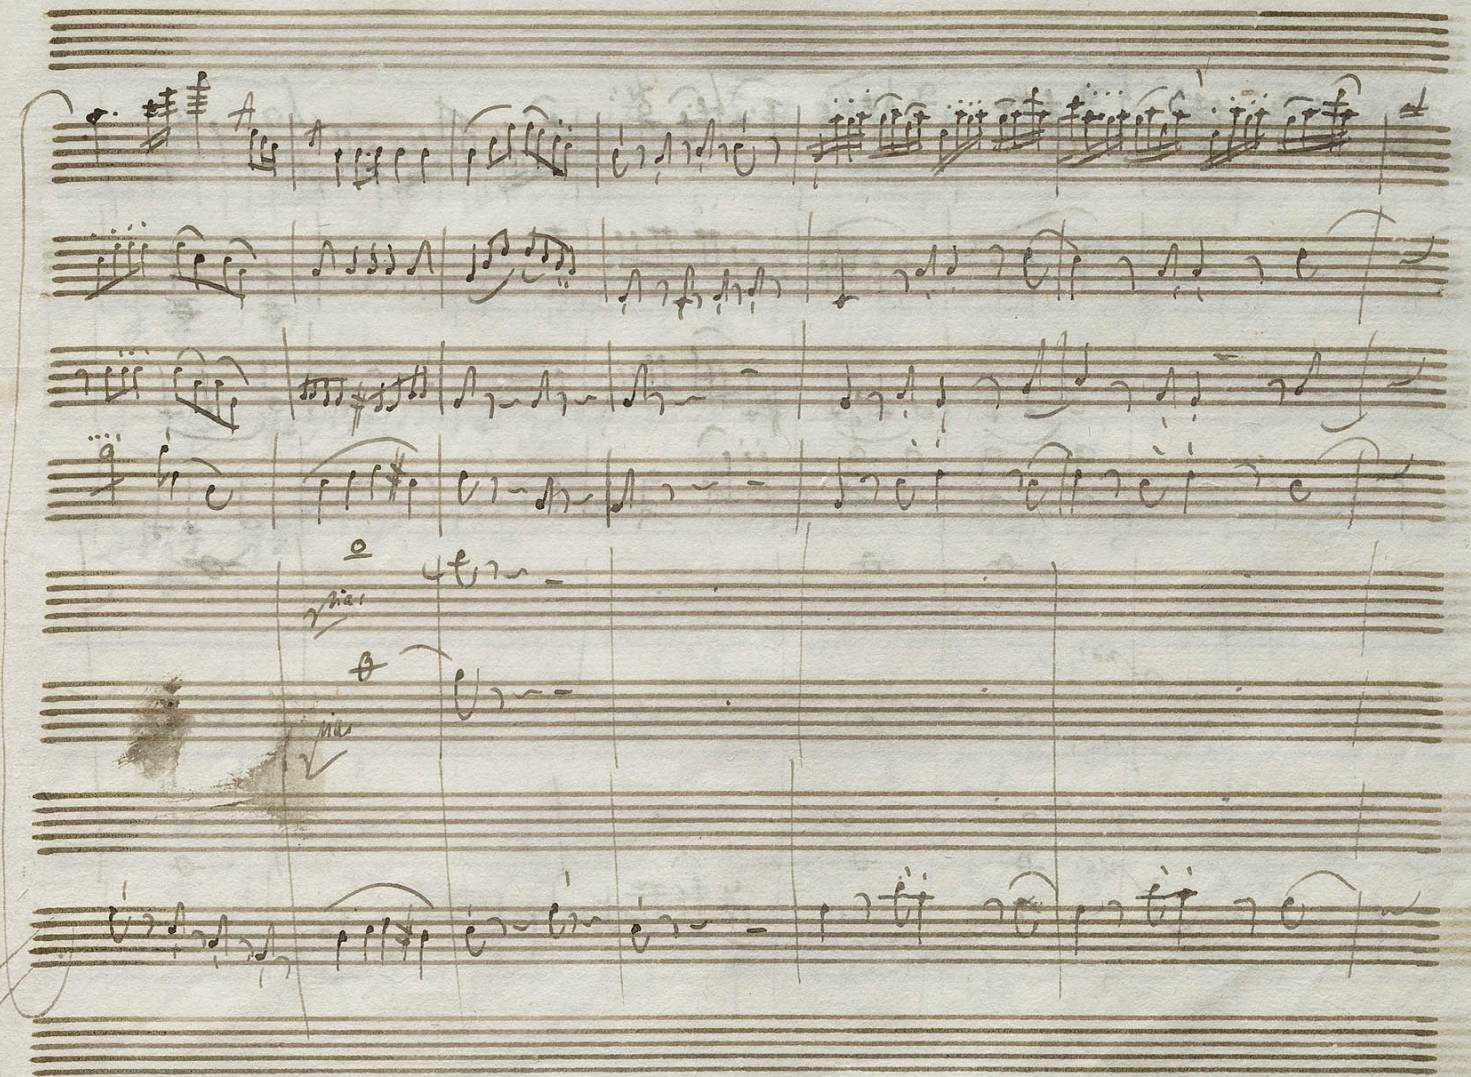 pia:
pia: